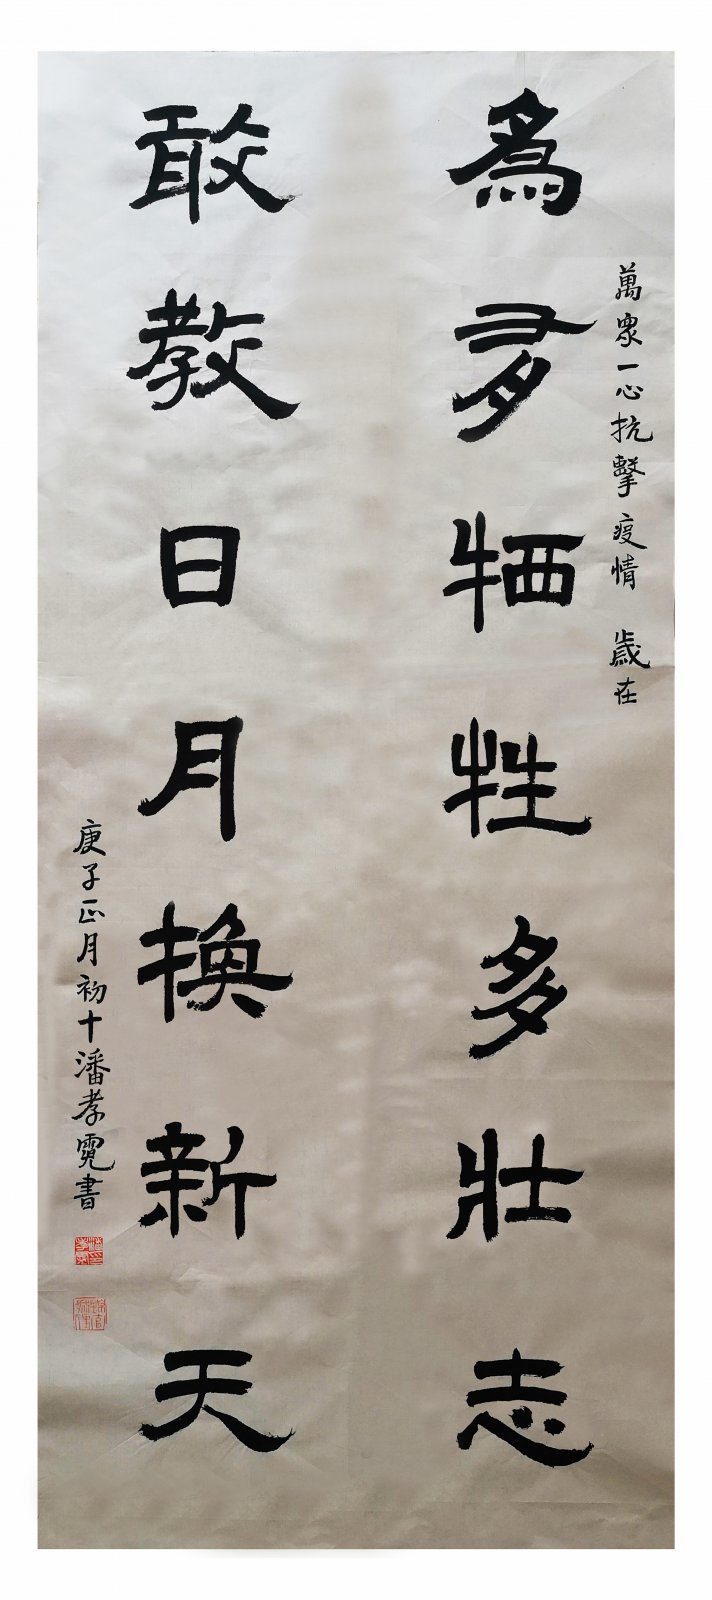 萬眾一心抗擊疫情 歲在
為有牺牲多壯志
敢教日月換新天
庚子正月初十潘孝霓書